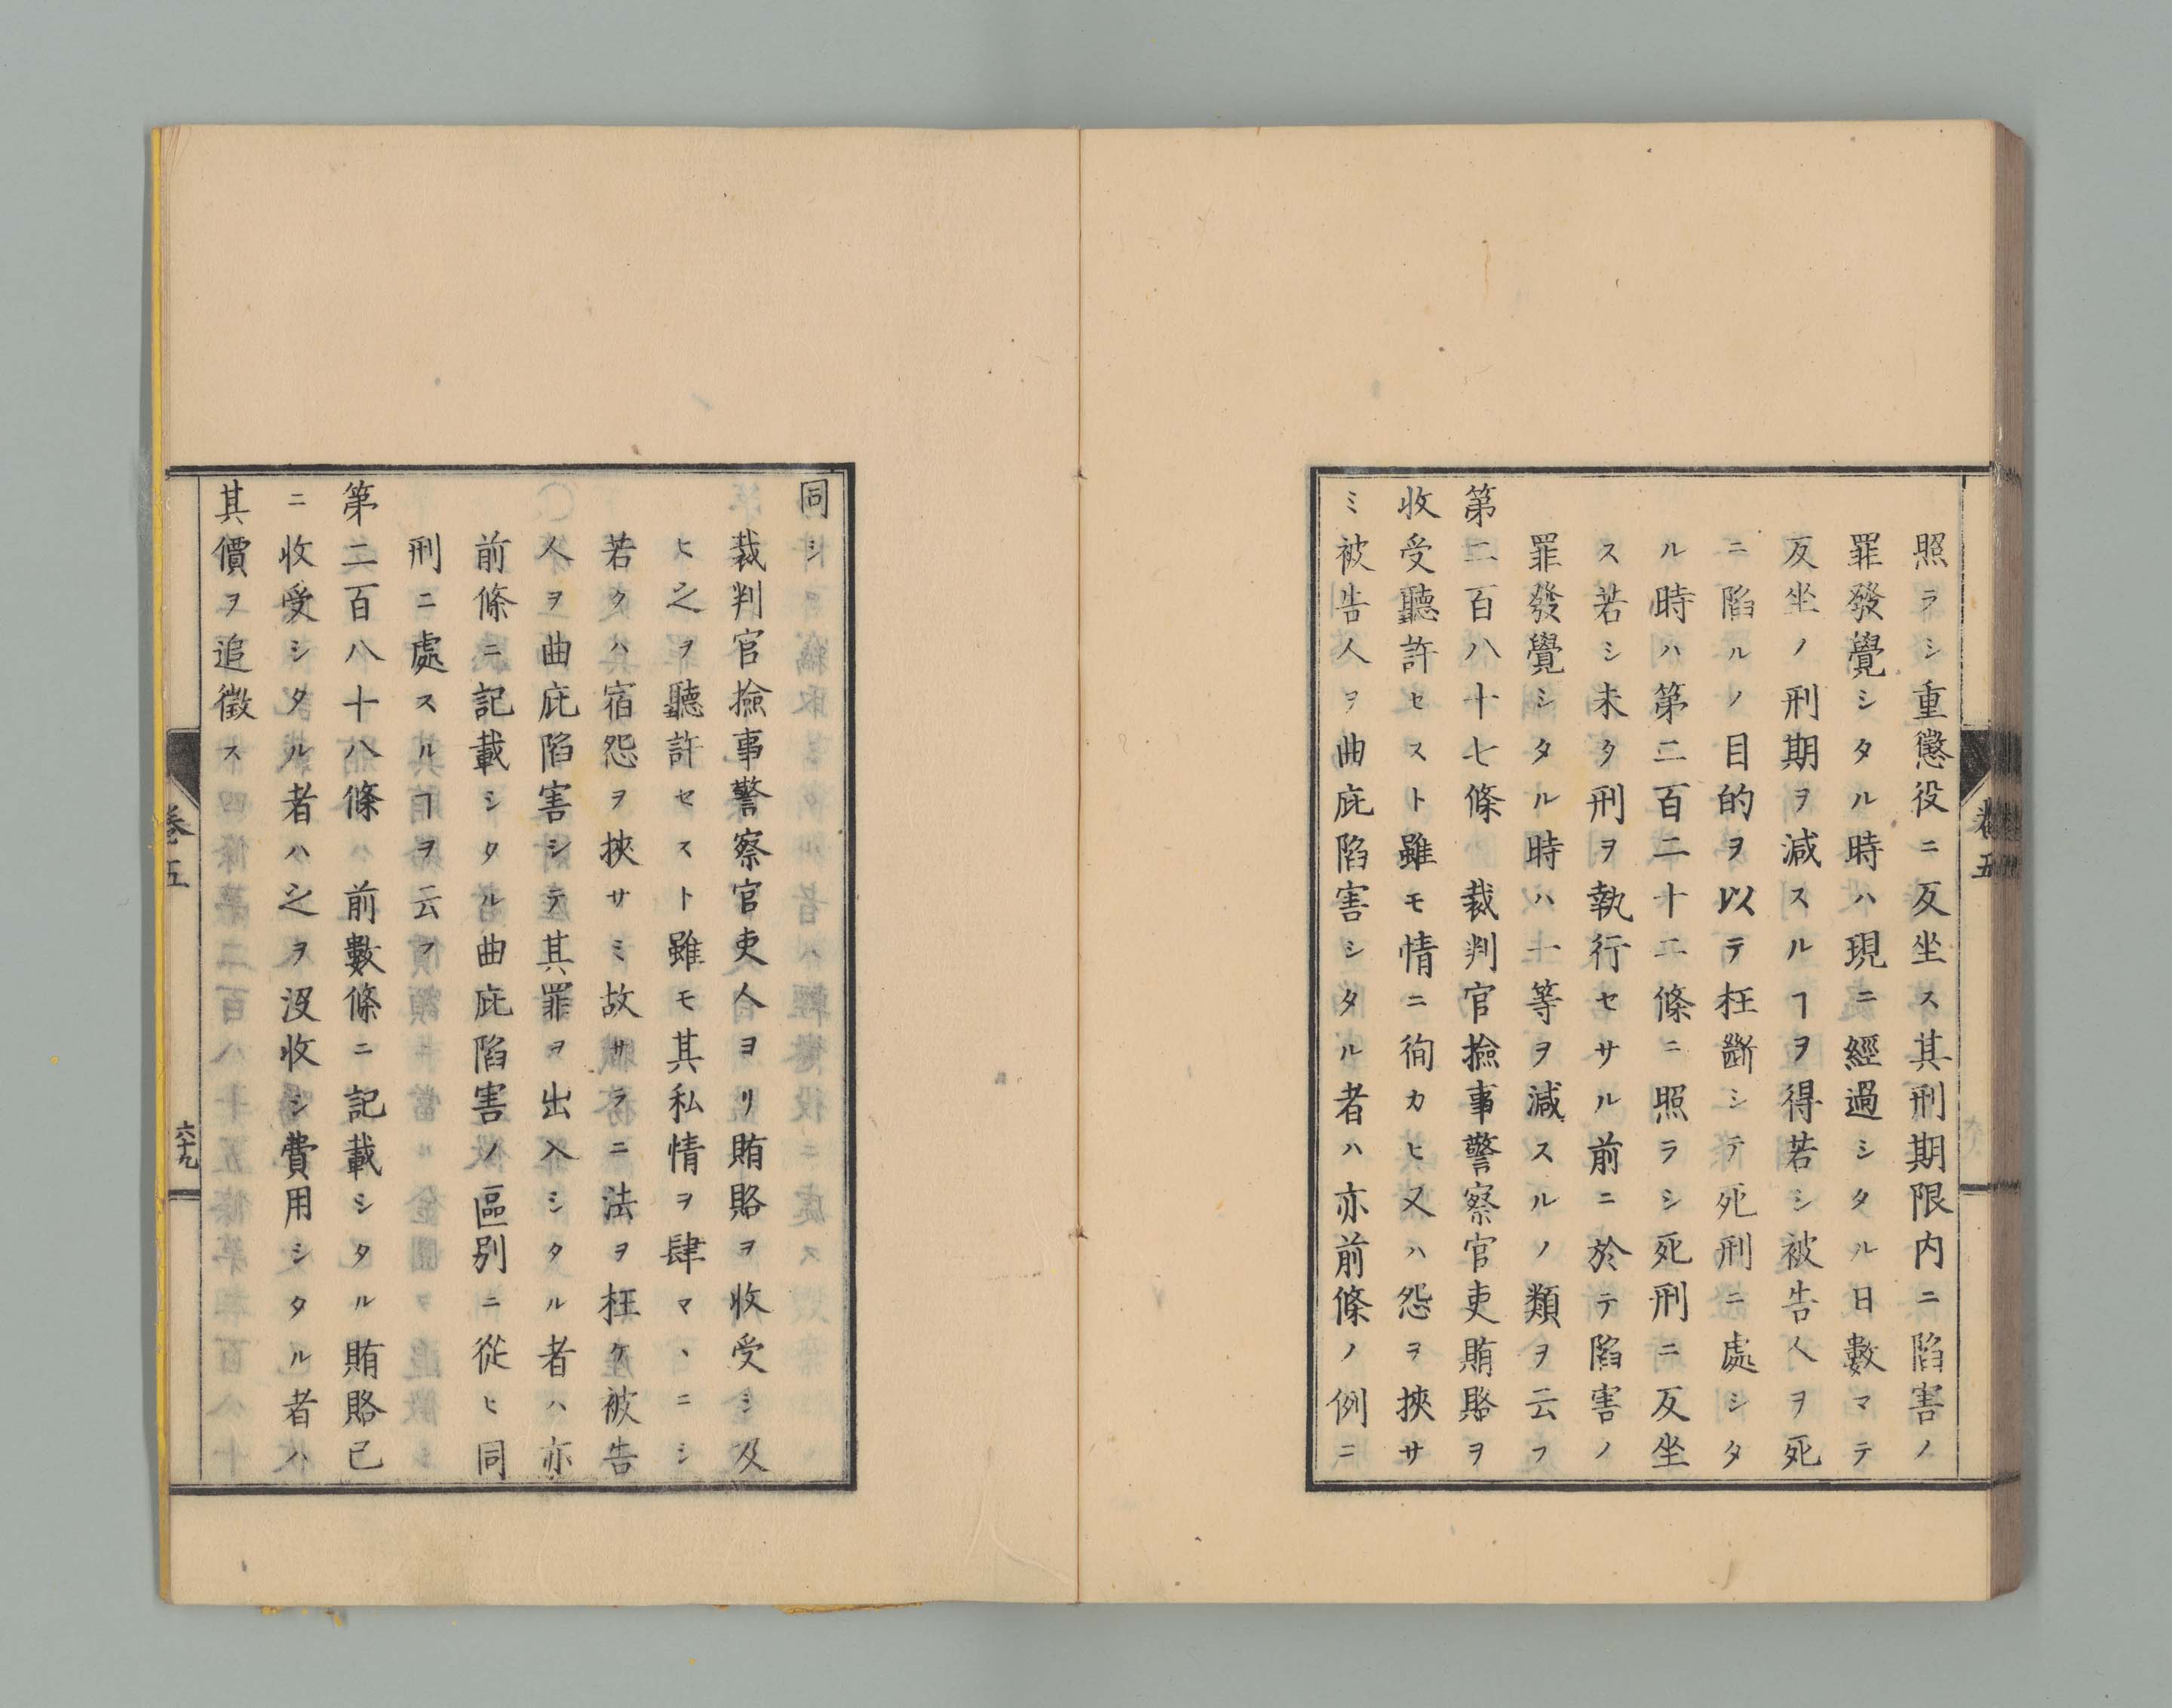 照ラシ重懲役ニ反坐ス其刑期限内ニ陷害ノ
罪發覺シタル時ハ現ニ經過シタル日數マテ
反坐ノ刑期ヲ減スルヿヲ得若シ被告人ヲ死
ニ陷ルノ目的ヲ以テ枉斷シテ死刑ニ處シタ
ル時ハ第二百二十二條ニ照ラシ死刑ニ反坐
ス若シ未タ刑ヲ執行セサル前ニ於テ陷害ノ
罪發覺シタル時ハ一等ヲ減スルノ類ヲ云フ
第二百八十七條 裁判官撿事警察官吏賄賂ヲ
收受聽許セスト雖モ情ニ徇カヒ又ハ怨ヲ挾サ
ミ被告人ヲ曲庇陷害シタル者ハ亦前條ノ例ニ
卷五
同シ
裁判官撿事警察官吏人ヨリ賄賂ヲ收受シ及
ヒ之ヲ聽許セスト雖モ其私情ヲ肆マヽニシ
若クハ宿怨ヲ挾サミ故サラニ法ヲ枉ケ被告
人ヲ曲庇陷害シテ其罪ヲ出入シタル者ハ亦
前條ニ記載シタル曲庇陷害ノ區別ニ從ヒ同
刑ニ處スルヿヲ云フ
第二百八十八條 前數條ニ記載シタル賄賂已
ニ收受シタル者ハ之ヲ沒收シ費用シタル者ハ
其價ヲ追徵ス
卷五
六十九